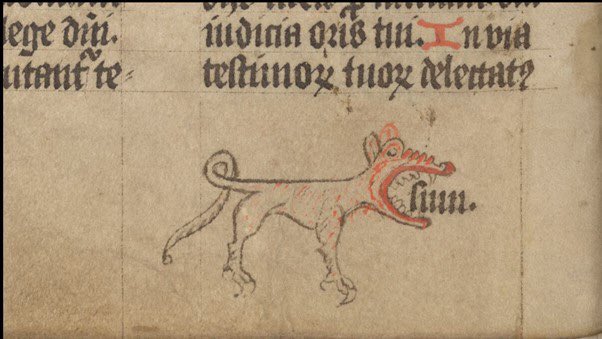 lege dñi.
utant᷑ te⸗
iudicia oris tui. In via
testimoꝝ tuoꝝ delectatꝰ
sum.